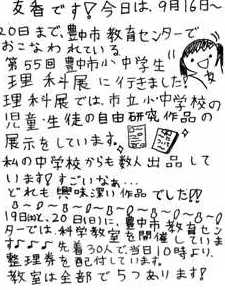 友香です!今日は、9月16日〜
20日まで、豊中市教育センターで
おこなわれている
第55回豊中市小中学生
理科展に行きました!
理科展では、市立小中学校の
児童・生徒の自由研究作品の
展示をしています。
私の中学校からも数人出品して
います!すごいなぁ...
どれも興味深い作品でした!!
19日(土)、20日(日)に、豊中市教育セン
ターでは、科学教室を開催していま
す♪♪♪先着30人で当日10時より、
整理券を配付しています。
教室は全部で5つあります!